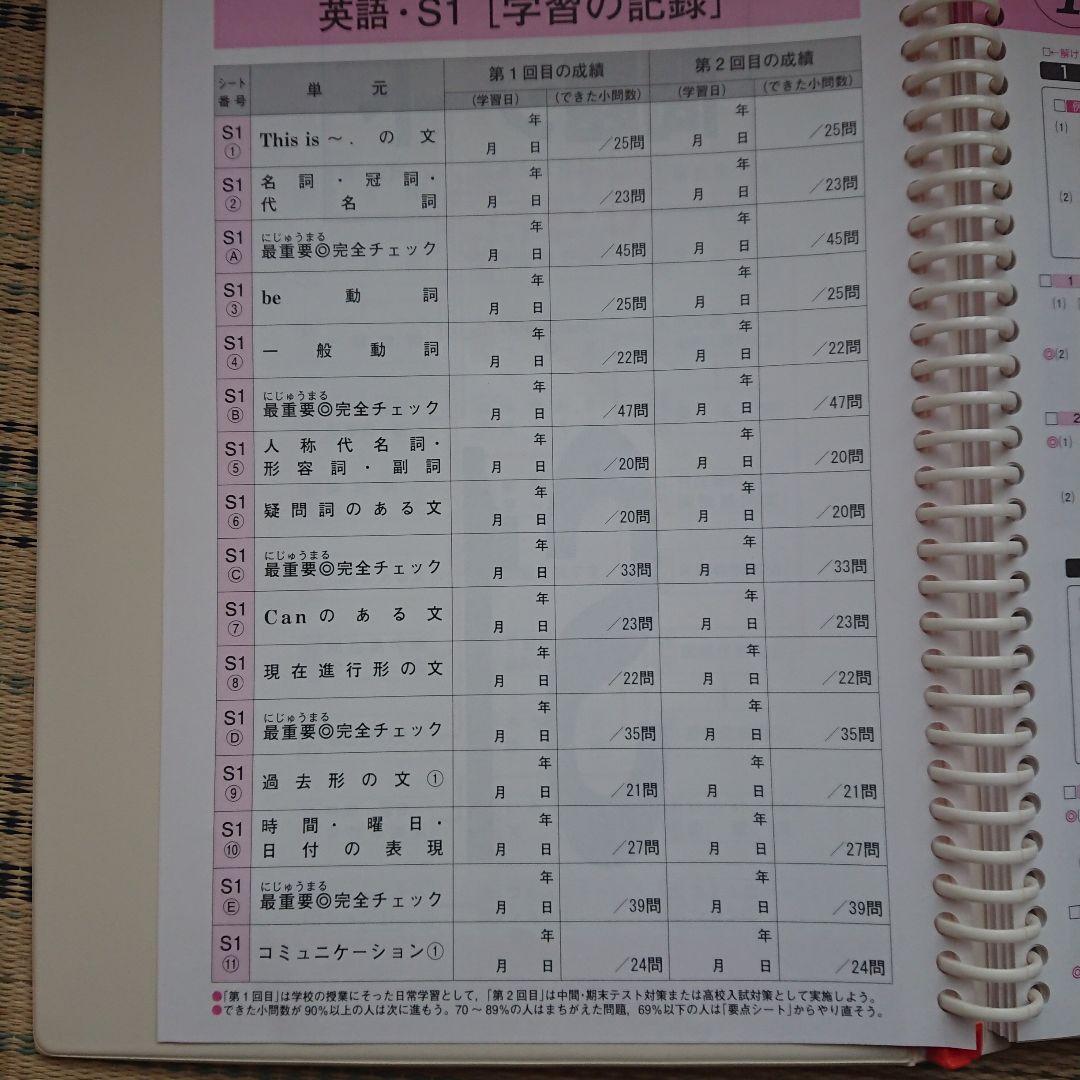 英語・S1[学習の記録]
シート番号 単元 第1回目の成績 第2回目の成績
(学習日) (できた小問数) (学習日) (できた小問数)
S1① This is ～．の文 年月日 ／25問 年月日 ／25問
S1② 名詞・冠詞・代名詞 年月日 ／23問 年月日 ／23問
S1Ⓐ 最重要◎完全チェック にじゅうまる 年月日 ／45問 年月日 ／45問
S1③ be動詞 年月日 ／25問 年月日 ／25問
S1④ 一般動詞 年月日 ／22問 年月日 ／22問
S1Ⓑ 最重要◎完全チェック にじゅうまる 年月日 ／47問 年月日 ／47問
S1⑤ 人称代名詞・形容詞・副詞 年月日 ／20問 年月日 ／20問
S1⑥ 疑問詞のある文 年月日 ／20問 年月日 ／20問
S1Ⓒ 最重要◎完全チェック にじゅうまる 年月日 ／33問 年月日 ／33問
S1⑦ Canのある文 年月日 ／23問 年月日 ／23問
S1⑧ 現在進行形の文 年月日 ／22問 年月日 ／22問
S1Ⓓ 最重要◎完全チェック にじゅうまる 年月日 ／35問 年月日 ／35問
S1⑨ 過去形の文① 年月日 ／21問 年月日 ／21問
S1⑩ 時間・曜日・日付の表現 年月日 ／27問 年月日 ／27問
S1Ⓔ 最重要◎完全チェック にじゅうまる 年月日 ／39問 年月日 ／39問
S1⑪ コミュニケーション① 年月日 ／24問 年月日 ／24問
●「第1回目」は学校の授業にそった日常学習として，「第2回目」は中間・期末テスト対策または高校入試対策として実施しよう。
●できた小問数が90%以上の人は次に進もう。70～89%の人はまちがえた問題，69%以下の人は「要点シート」からやり直そう。
1
(1)
(2)
1
(1)
◎(2)
2
◎(1)
(2)